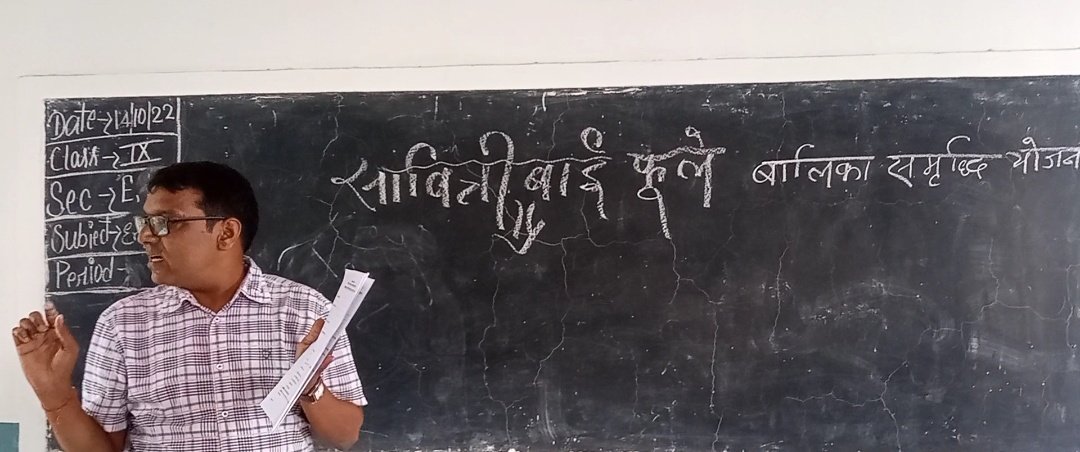 Date→14/10/22
Class→IX
Sec→E
Subject→
Period-
सावित्री बाई फूले बालिका समृद्धि योजन